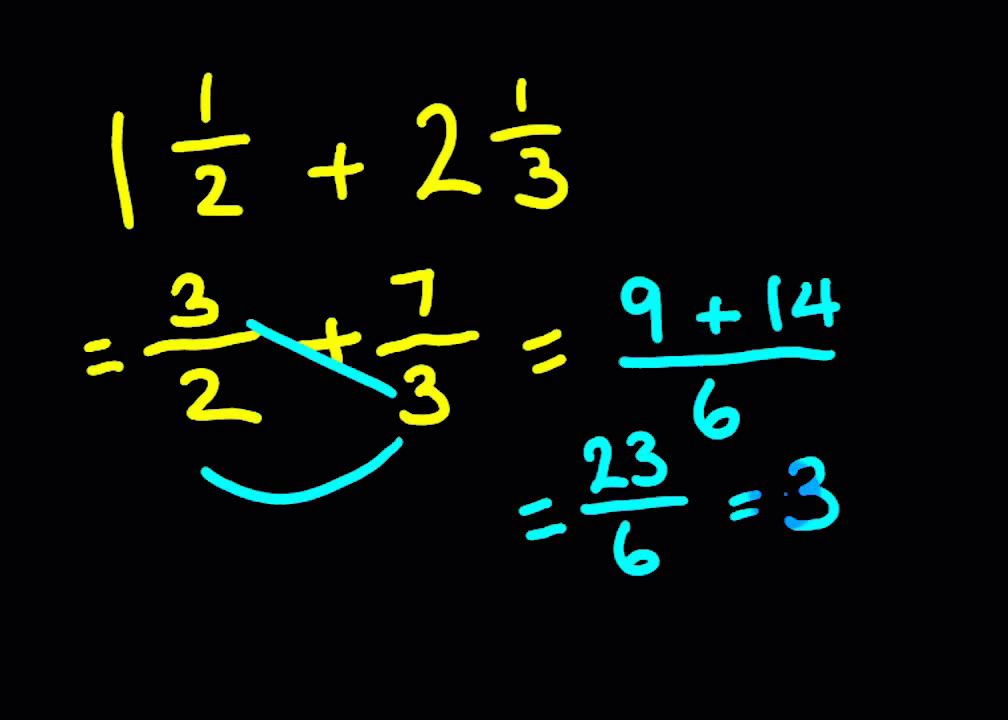 1 1/2 + 2 1/3
= 3/2 + 7/3 = (9 + 14)/6
= 23/6 = 3